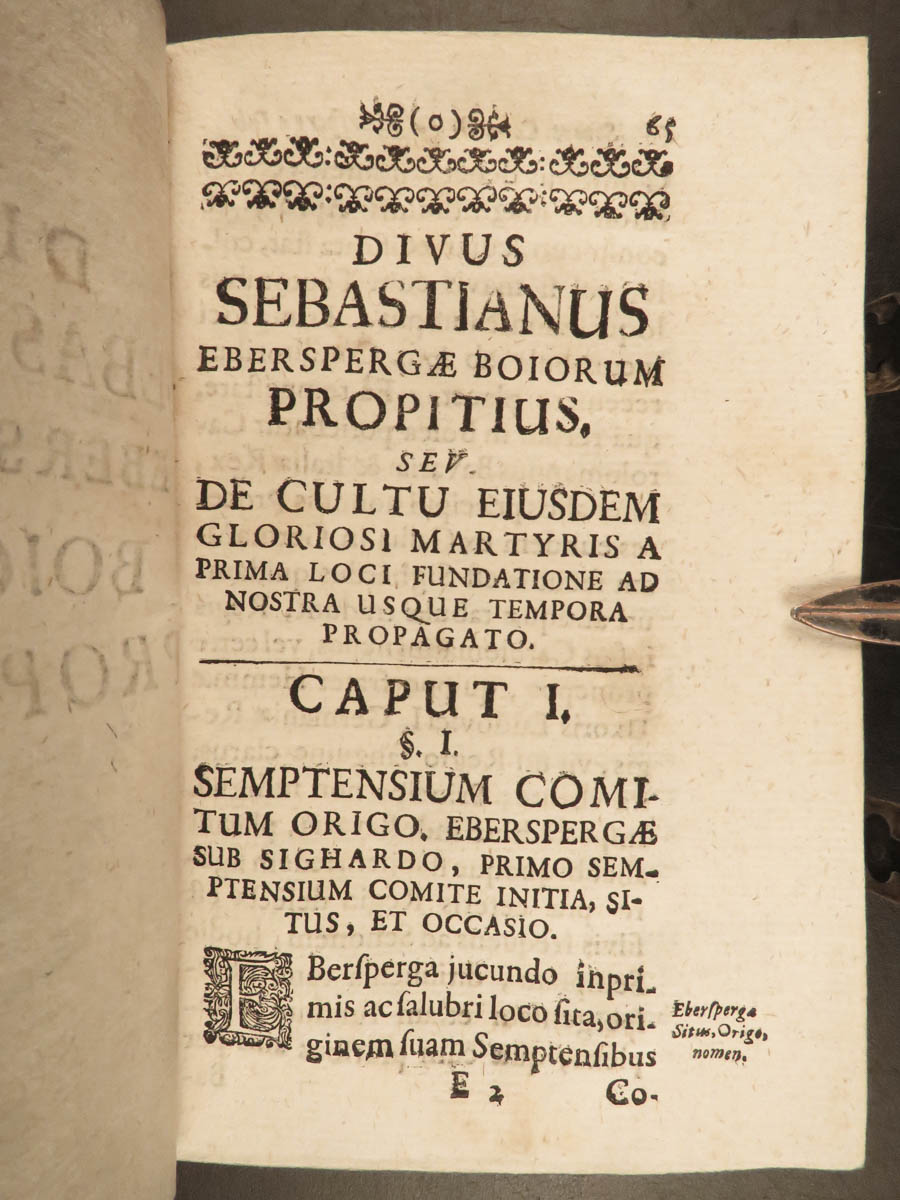 (o) 65
DIVUS
SEBASTIANUS
EBERSPERGÆ BOIORUM
PROPITIUS.
SEV.
DE CULTU EIUSDEM
GLORIOSI MARTYRIS A
PRIMA LOCI FUNDATIONE AD
NOSTRA USQUE TEMPORA
PROPAGATO.
CAPUT I.
§. I.
SEMPTENSIUM COMI-
TUM ORIGO. EBERSPERGÆ
SUB SIGHARDO, PRIMO SEM-
PTENSIUM COMITE INITIA, SI-
TUS, ET OCCASIO.
EBerſperga jucundo inpri-
mis ac ſalubri loco ſita, ori-
ginem ſuam Semptenſibus
Eberſpergæ
Situs, Origo,
nomen.
E 2 Co-